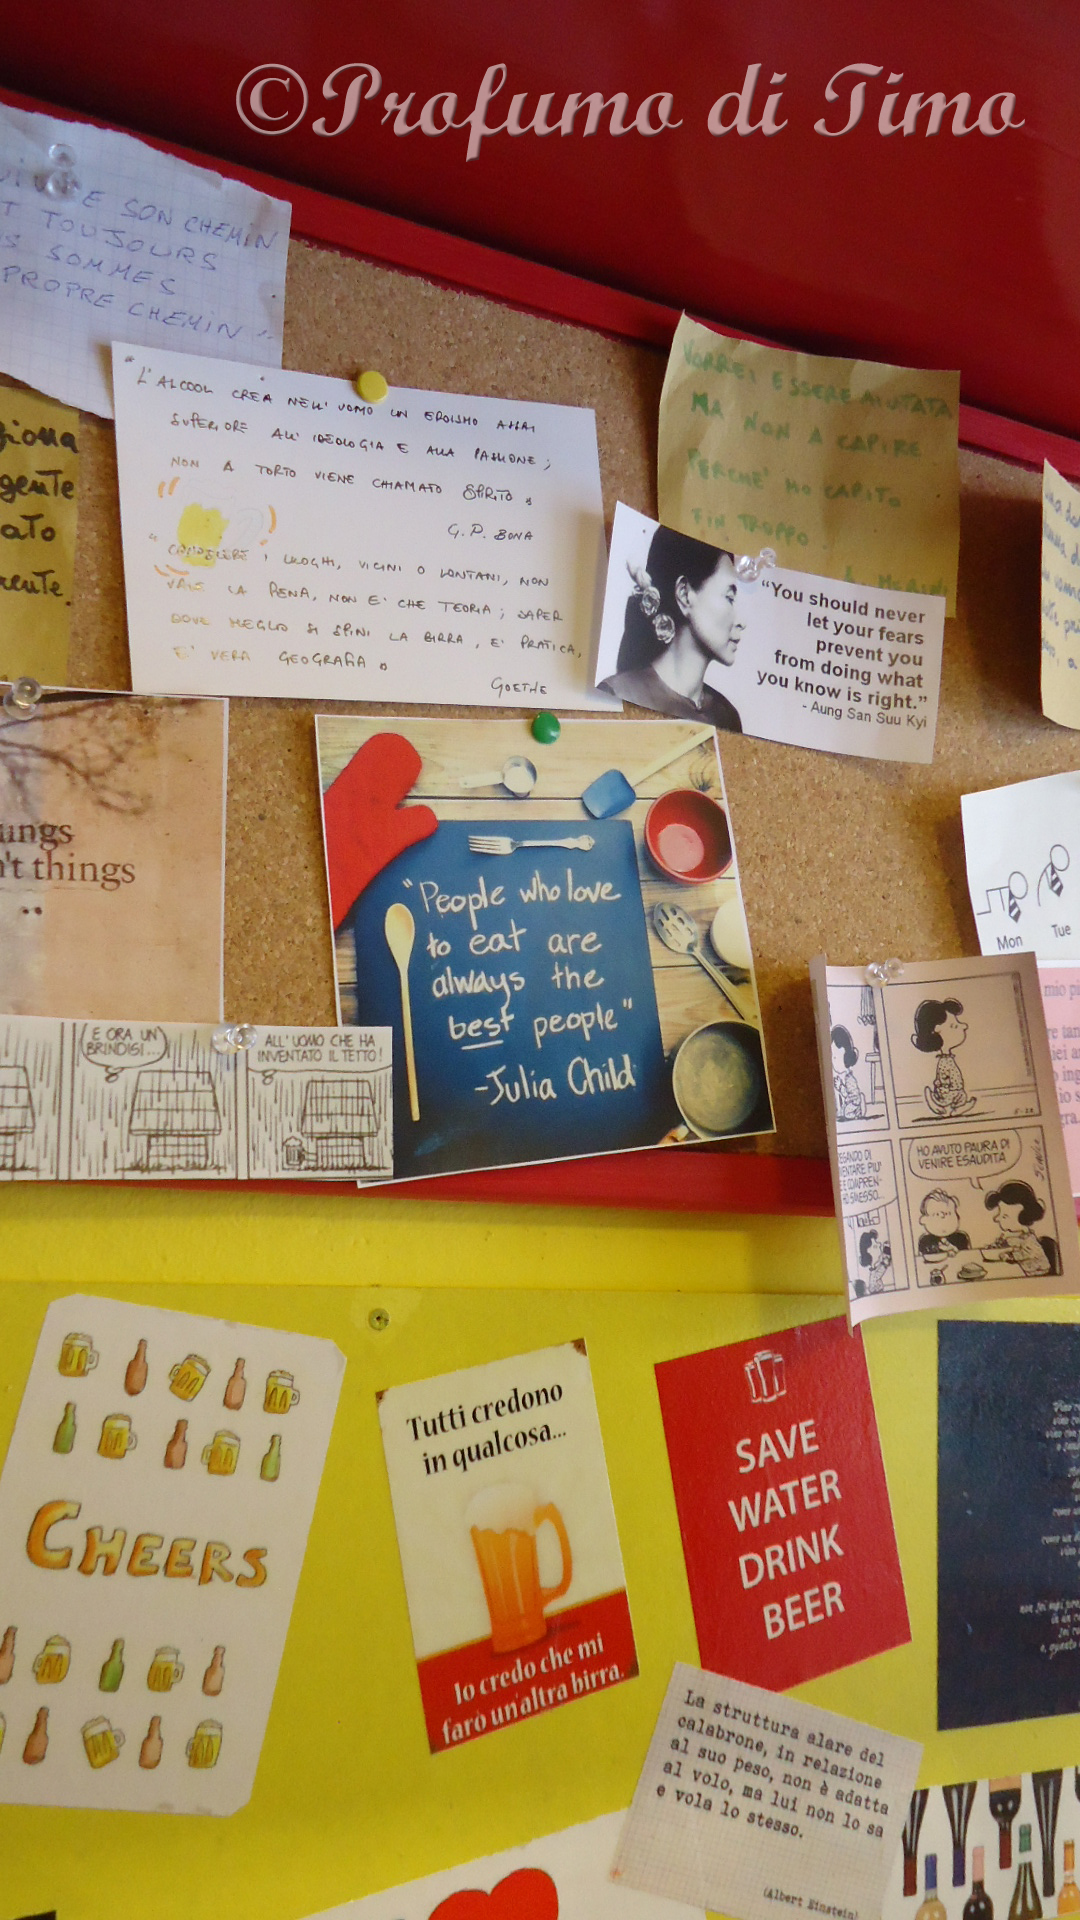 ©Profumo di Timo
E SON CHEMIN
T TOUJOURS
S SOMMES
PROPRE CHEMIN"
"L'ALCOOL CREA NELL'UOMO UN EROISMO ASSAI
SUPERIORE ALL'IDEOLOGIA E ALLA PASSIONE;
NON A TORTO VIENE CHIAMATO SPIRITO.
G.P. BONA
"CONOSCERE I LUOGHI, VICINI O LONTANI, NON
VALE LA PENA, NON E' CHE TEORIA; SAPER
DOVE MEGLIO SI SPINI LA BIRRA, E' PRATICA,
E' VERA GEOGRAFIA.
GOETHE
VORREI ESSERE AIUTATA
MA NON A CAPIRE
PERCHE' HO CAPITO
FIN TROPPO.
giona
gente
ato
rente.
"You should never
let your fears
prevent you
from doing what
you know is right."
- Aung San Suu Kyi
ings
n't things
"People who love
to eat are
always the
best people"
-Julia Child
Mon Tue
E ORA UN
BRINDISI...
ALL'UOMO CHE HA
INVENTATO IL TETTO!
5-28
ESANDO DI
VENTARE PIU'
E COMPREN-
SMESSO...
HO AVUTO PAURA DI
VENIRE ESAUDITA
mio pi
CHEERS
Tutti credono
in qualcosa...
Io credo che mi
farò un'altra birra.
SAVE
WATER
DRINK
BEER
La struttura alare del
calabrone, in relazione
al suo peso, non è adatta
al volo, ma lui non lo sa
e vola lo stesso.
(Albert Einstein)